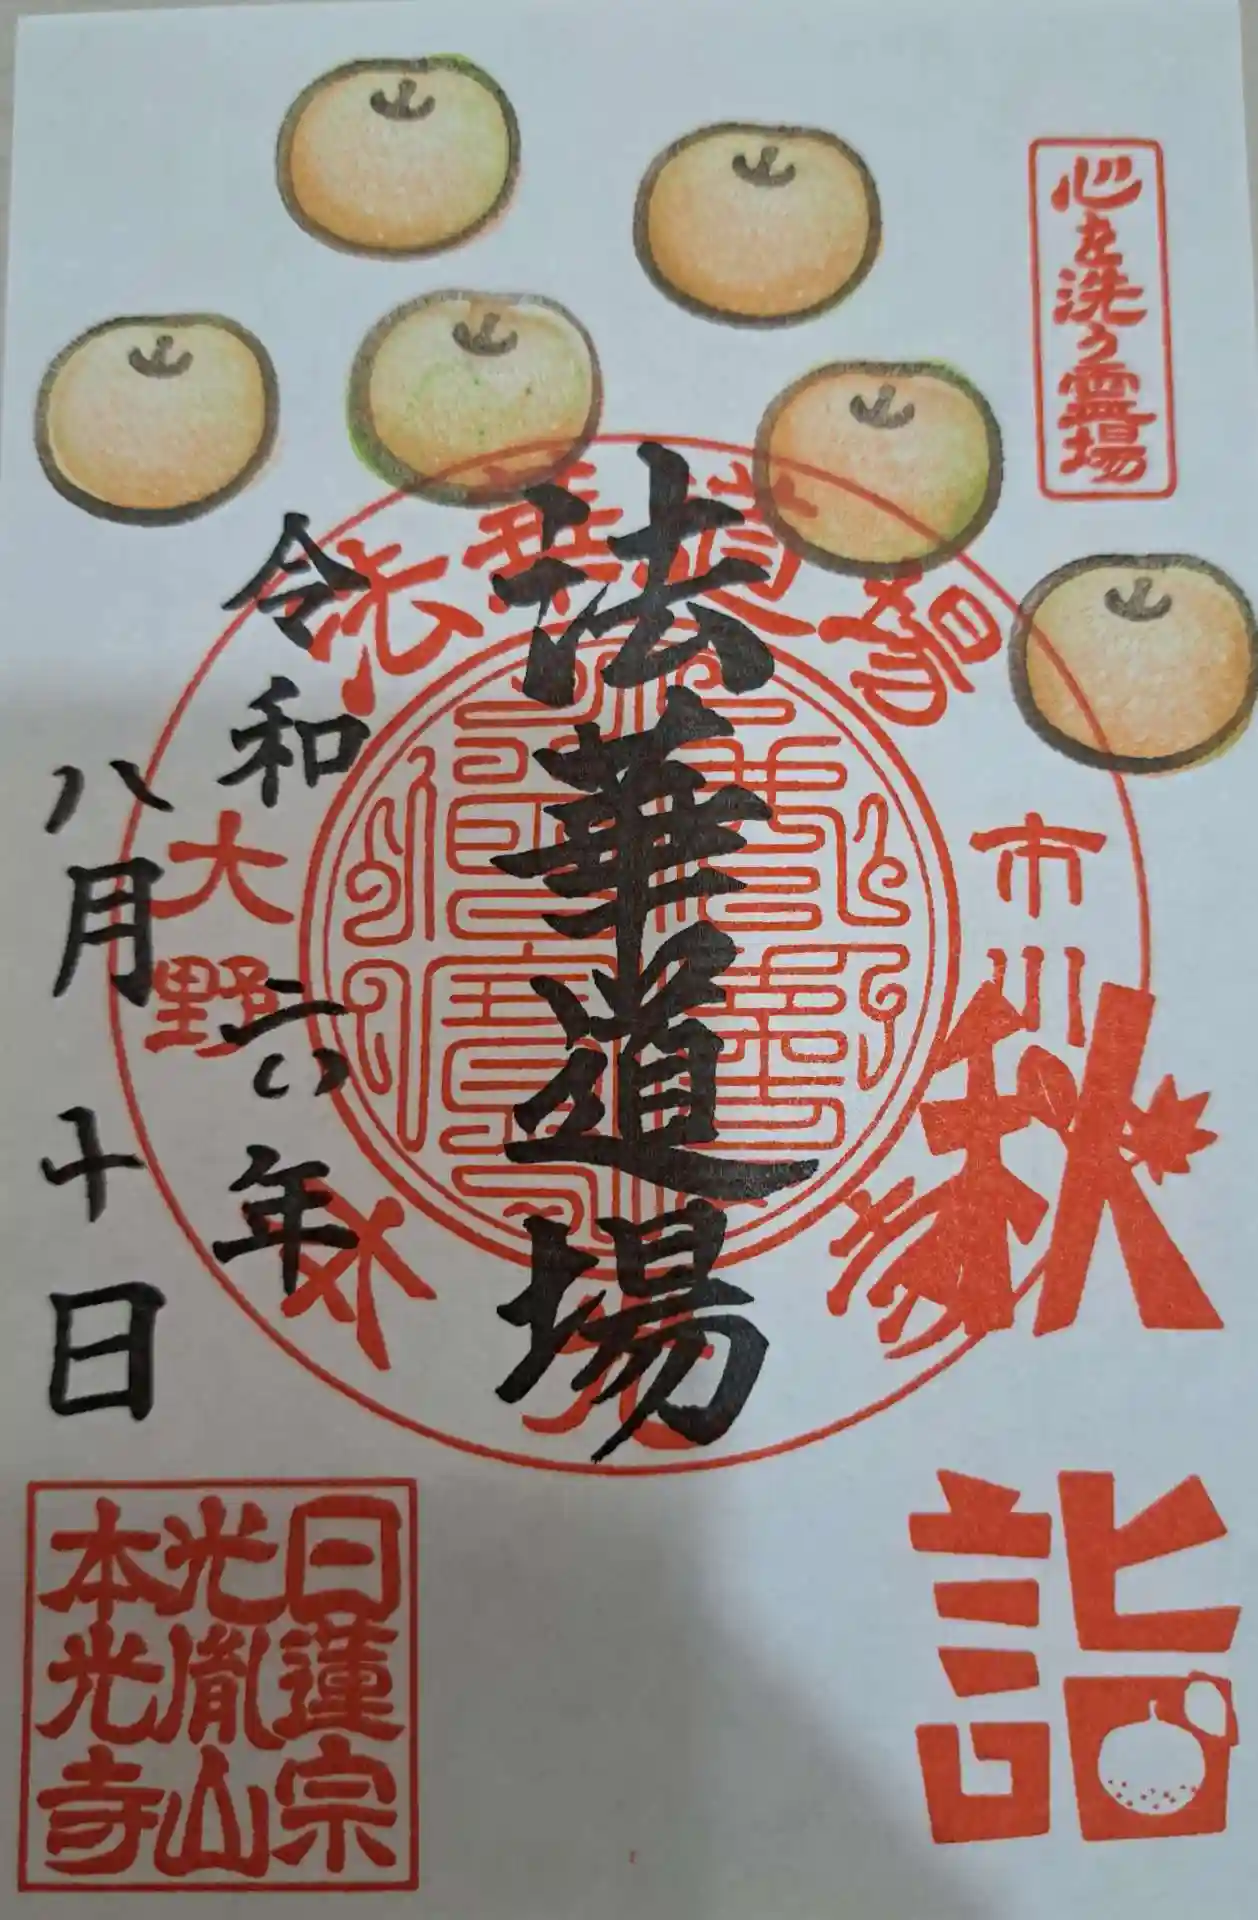 心を洗う霊場
法華道場
令和六年
八月十日
法華道場
市川
大野
秋
詣
日蓮宗
光胤山
本光寺